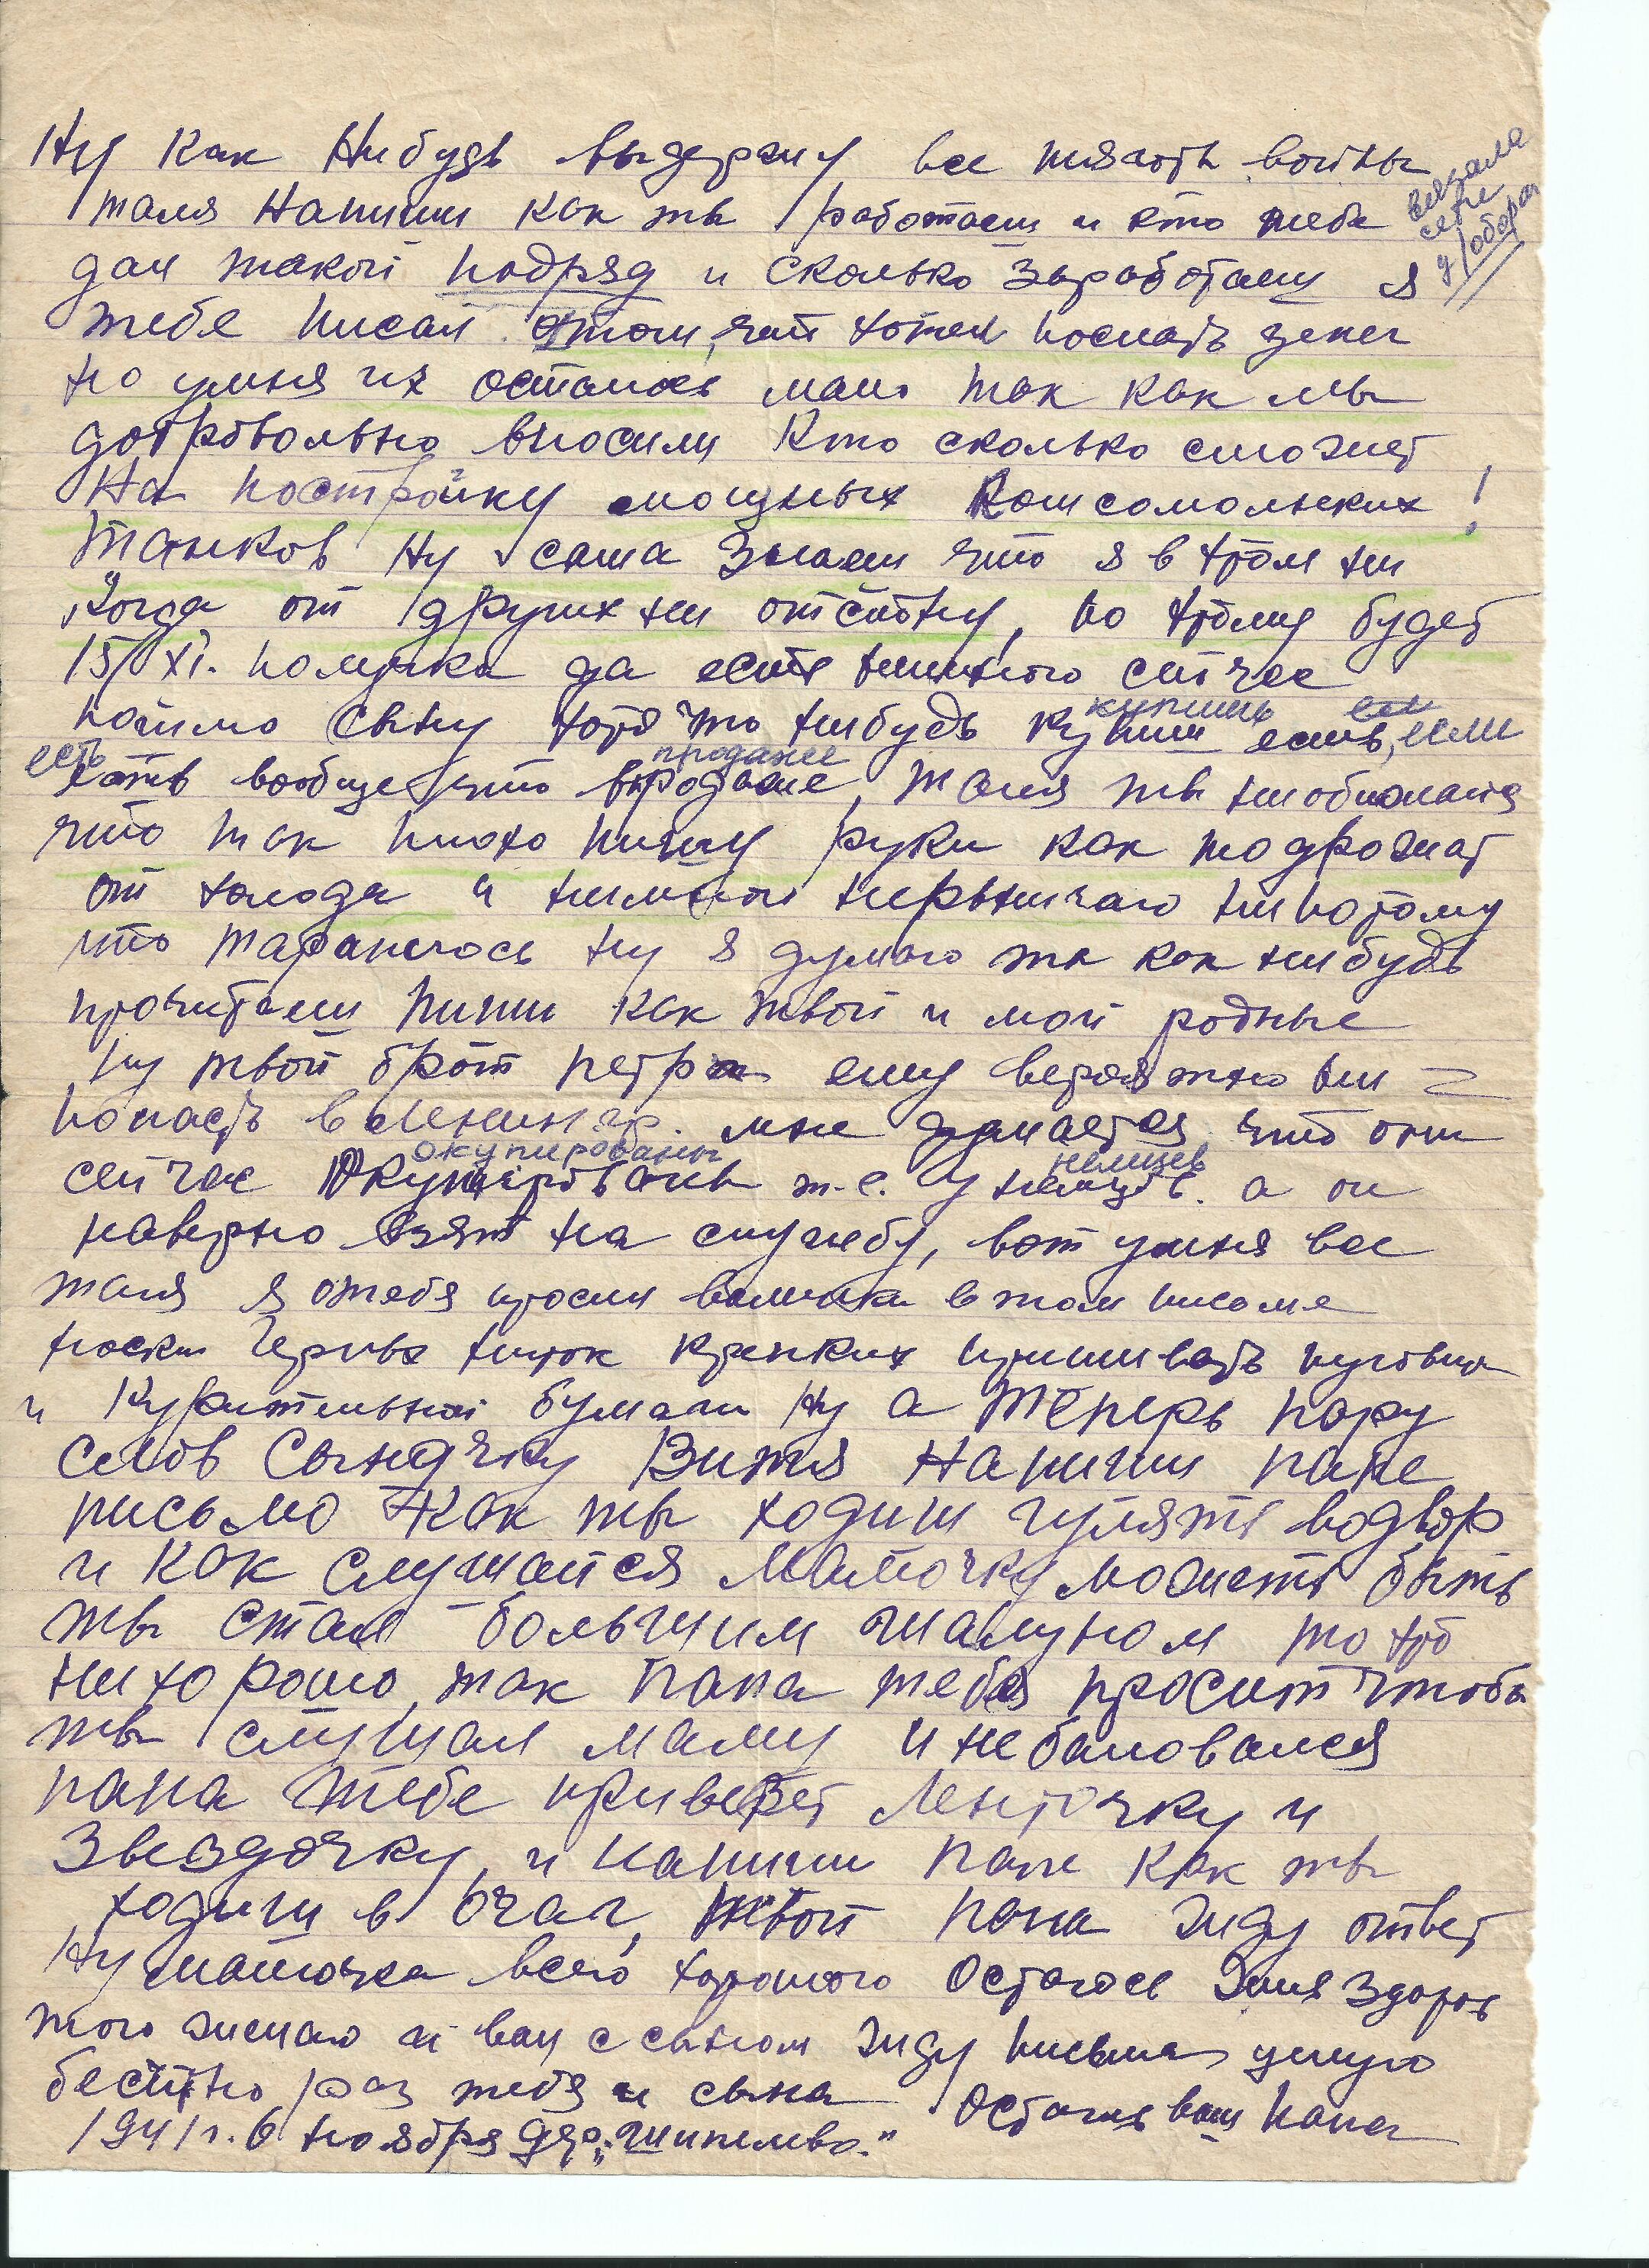 Ну как Нибудь выдержу все тягoты войны
вязала
сети
д/обороны
таля Напиши как ты работаеш и кто тебе
дал такой подряд и сколько заработаеш я
тебе писал отом, что хотел послать денег
но уменя их осталось мало так как мы
добровольно вносили Кто сколько сможет
На постройку мощных Комсомольских !
Танков Ну саша Знаеш что я в этом ни
когда от других ни отстону, по этому будет
15/XI. получка да есть немного сичас
купишь если
пошлю сыну хотя что нибудь купиш есть, если
есть продаже
есть вообще что впродаже, таля ты ниобижайся
что так плохо пишу руки как то дрожат
от холода и нимного нирвничаю ни потому
что тараплюсь ну я думаю ты как нибудь
прочитаеш пиши как твои и мои родные
ну твой брат петр ему вероятно ни
попасть в Ленингр. мне думается что они
окупированы немцев
сичас Окупированы т.е. у немцов. а он
наверно взят на службу, вот уменя все
таля я отебя просил валинки втом письме
носки Черных ниток крепких пришивать пуговицы
и Курительной бумаги Ну а Теперь пару
слов Сыночку Витя Напиши папе
письмо Как ты ходиш гулять водвор
и как слушаися Мамочку может быть
ты стал большим шалуном то это
нихорошо, так папа тебя просит чтобы
ты слушал маму и не баловался
папа тебе привезет Ленточку и
Звездочку, и напиши папе как ты
ходиш в очаг, твой папа жду ответ
Ну мамочка всего хорошого Остаюсь Жив Здоров
того желаю и вам с сыном жду письма целую
бесщтно раз тебя и сына Остаюсь ваш папа
1941 г. 6 ноября дер.